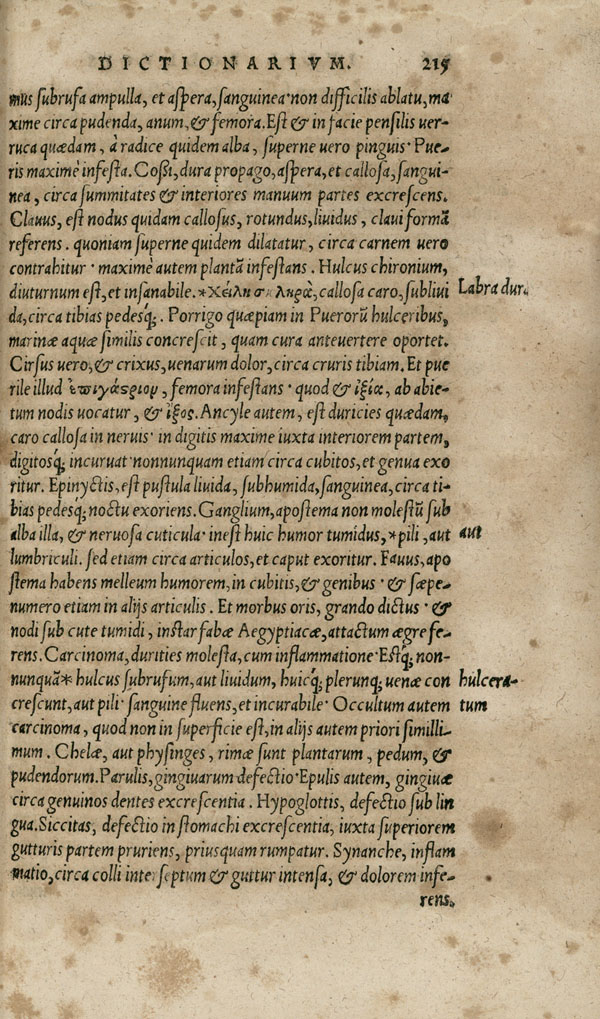 DICTIONARIVM. 215
mus subrufa ampulla, et aspera, sanguinea·non difficilis ablatu, ma
xime circa pudenda, anum, & femora. Est & in facie pensilis ver-
ruca quædam, à radice quidem alba, superne uero pinguis· Pue-
ris maximè infesta. Cossi, dura propago, aspera, et callosa, sangui-
nea, circa summitates & interiores manuum partes excrescens.
Clauus, est nodus quidam callosus, rotundus, liuidus, claui formã
referens. quoniam superne quidem dilatatur, circa carnem uero
contrahitur· maximè autem plantã infestans. Hulcus chironium,
diuturnum est, et insanabile. *Χείλη σκληρὰ, callosa caro, subliui
Labra dur.
da, circa tibias pedesq́;. Porrigo quæpiam in Puerorũ hulceribus,
marinæ aquæ similis concrescit, quam cura anteuertere oportet.
Cirsus uero, & crixus, uenarum dolor, circa cruris tibiam. Et pue
rile illud ἐπιγάςριον, femora infestans· quod & ἰξία, ab abie-
tum nodis uocatur, & ἰξος. Ancyle autem, est duricies quædam,
caro callosa in neruis· in digitis maxime iuxta interiorem partem,
digitosq́; incuruat·nonnunquam etiam circa cubitos, et genua exo
ritur. Epinyctis, est pustula liuida, subhumida, sanguinea, circa ti-
bias pedesq́; noctu exoriens. Ganglium, apostema non molestũ sub
alba illa, & neruosa cuticula· inest huic humor tumidus, *pili, aut
aut
lumbriculi. sed etiam circa articulos, et caput exoritur. Fauus, apo
stema habens melleum humorem, in cubitis, & genibus· & sæpe-
numero etiam in alijs articulis. Et morbus oris, grando dictus· &
nodi sub cute tumidi, instar fabæ Aegyptiacæ, attactum ægre fe-
rens. Carcinoma, durities molesta, cum inflammatione·Estq́; non-
nunquã* hulcus subrufum, aut liuidum, huicq́; plerunq; uenæ con
hulcera-
crescunt, aut pili· sanguine fluens, et incurabile· Occultum autem
tum
carcinoma, quod non in superficie est, in alijs autem priori simillí-
mum. Chelæ, aut physinges, rimæ sunt plantarum, pedum, &
pudendorum. Parulis, gingiuarum defectio·Epulis autem, gingiuæ
circa genuinos dentes excrescentia. Hypoglottis, defectio sub lin
gua. Siccitas, defectio in stomachi excrescentia, iuxta superiorem
gutturis partem pruriens, priusquam rumpatur. Synanche, inflam
matio, circa colli interseptum & guttur intensa, & dolorem infe-
rens.